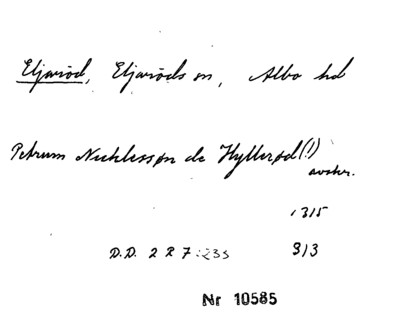 Eljaröd, Eljaröds sn, Albo hd
Petrum Nichlessøn de Hyllerød (!)
avskr.
1315
D.D. 2 R 7:235 313
Nr 10585